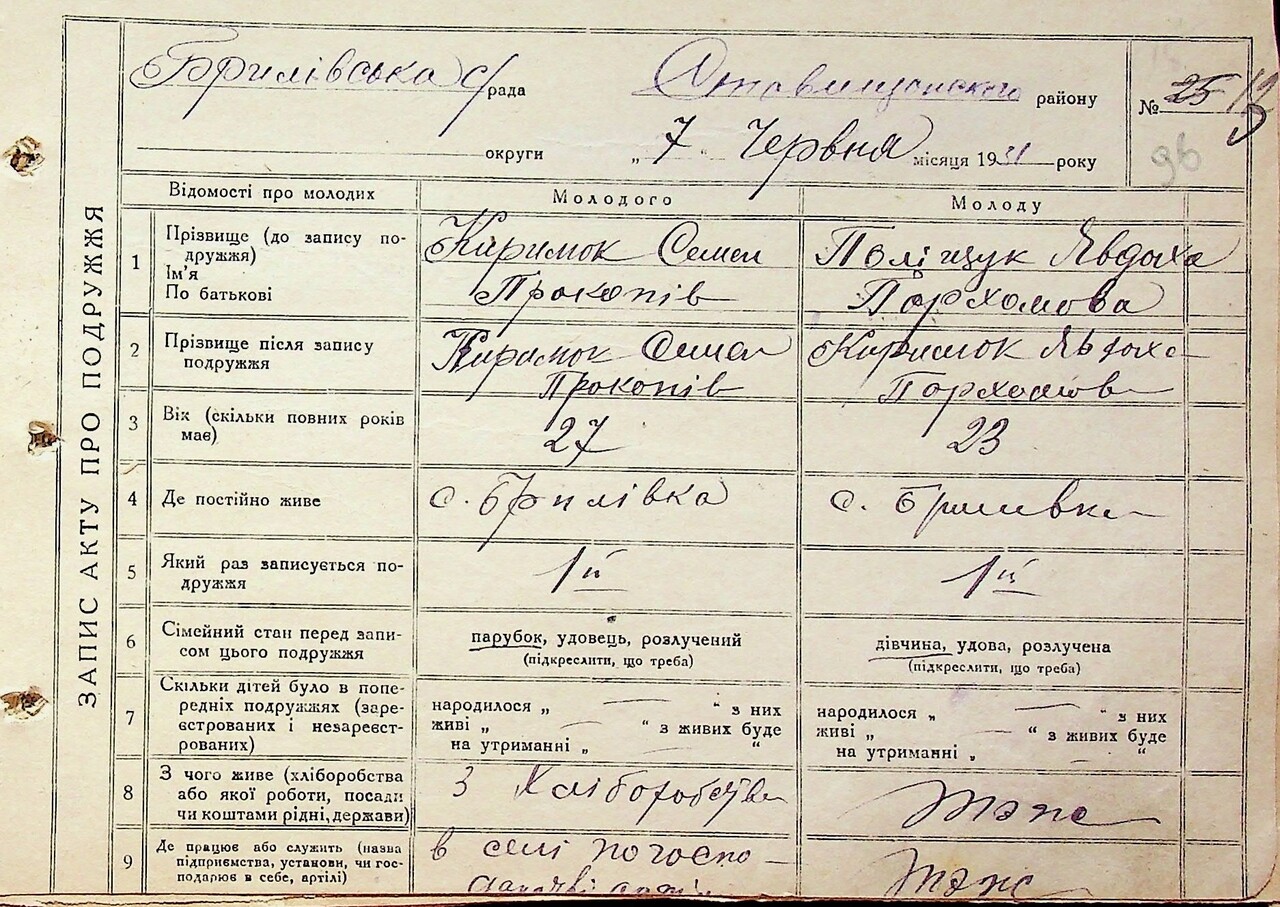 ЗАПИС АКТУ ПРО ПОДРУЖЖЯ
Брилівська с/рада Ставищанського району № 25 12
округи „ 7 “ Червня місяця 1931 року 96
Відомості про молодих Молодого Молоду
1 Прізвище (до запису подружжя) Киримок Семен Поліщук Явдоха
Ім'я
По батькові Прокопів Порхомова
2 Прізвище після запису Киримок Семен Киримок Явдоха
подружжя Прокопів Порхомов
3 Вік (скільки повних років
має) 27 23
4 Де постійно живе с. Брилівка с. Бриливка
5 Який раз записується по-
дружжя 1й 1й
6 Сімейний стан перед запи- парубок, удовець, розлучений дівчина, удова, розлучена
сом цього подружжя (підкреслити, що треба) (підкреслити, що треба)
7 Скільки дітей було в попе-
редніх подружжях (заре- народилося „ — “ з них народилося „ — “ з них
єстрованих і незареєст- живі „ — “ з живих буде живі „ — “ з живих буде
рованих) на утриманні „ — “ на утриманні „ — “
8 З чого живе (хліборобства
або якої роботи, посади З Хліборобства тэж
чи коштами рідні, держави)
9 Де працює або служить (назва в селі по госпо-
підприємства, установи, чи гос- тэж
подарює в себе, артілі)